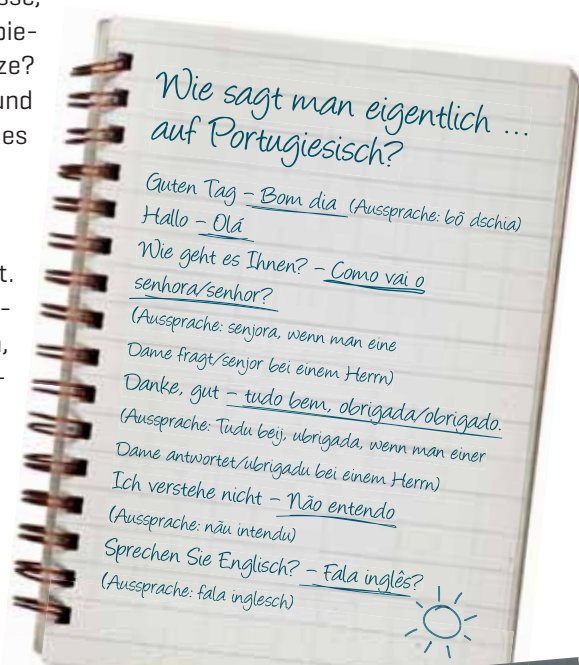 sse,
bie-
ze?
und
es
t.
-
,
-
Wie sagt man eigentlich ...
auf Portugiesisch?
Guten Tag – Bom dia (Aussprache: bõ dschia)
Hallo – Olá
Wie geht es Ihnen? – Como vai o
senhora/senhor?
(Aussprache: senjora, wenn man eine
Dame fragt/senjor bei einem Herrn)
Danke, gut – tudo bem, obrigada/obrigado.
(Aussprache: Tudu beij, ubrigada, wenn man einer
Dame antwortet/ubrigadu bei einem Herrn)
Ich verstehe nicht – Não entendo
(Aussprache: nãu intendu)
Sprechen Sie Englisch? – Fala inglês?
(Aussprache: fala inglesch)